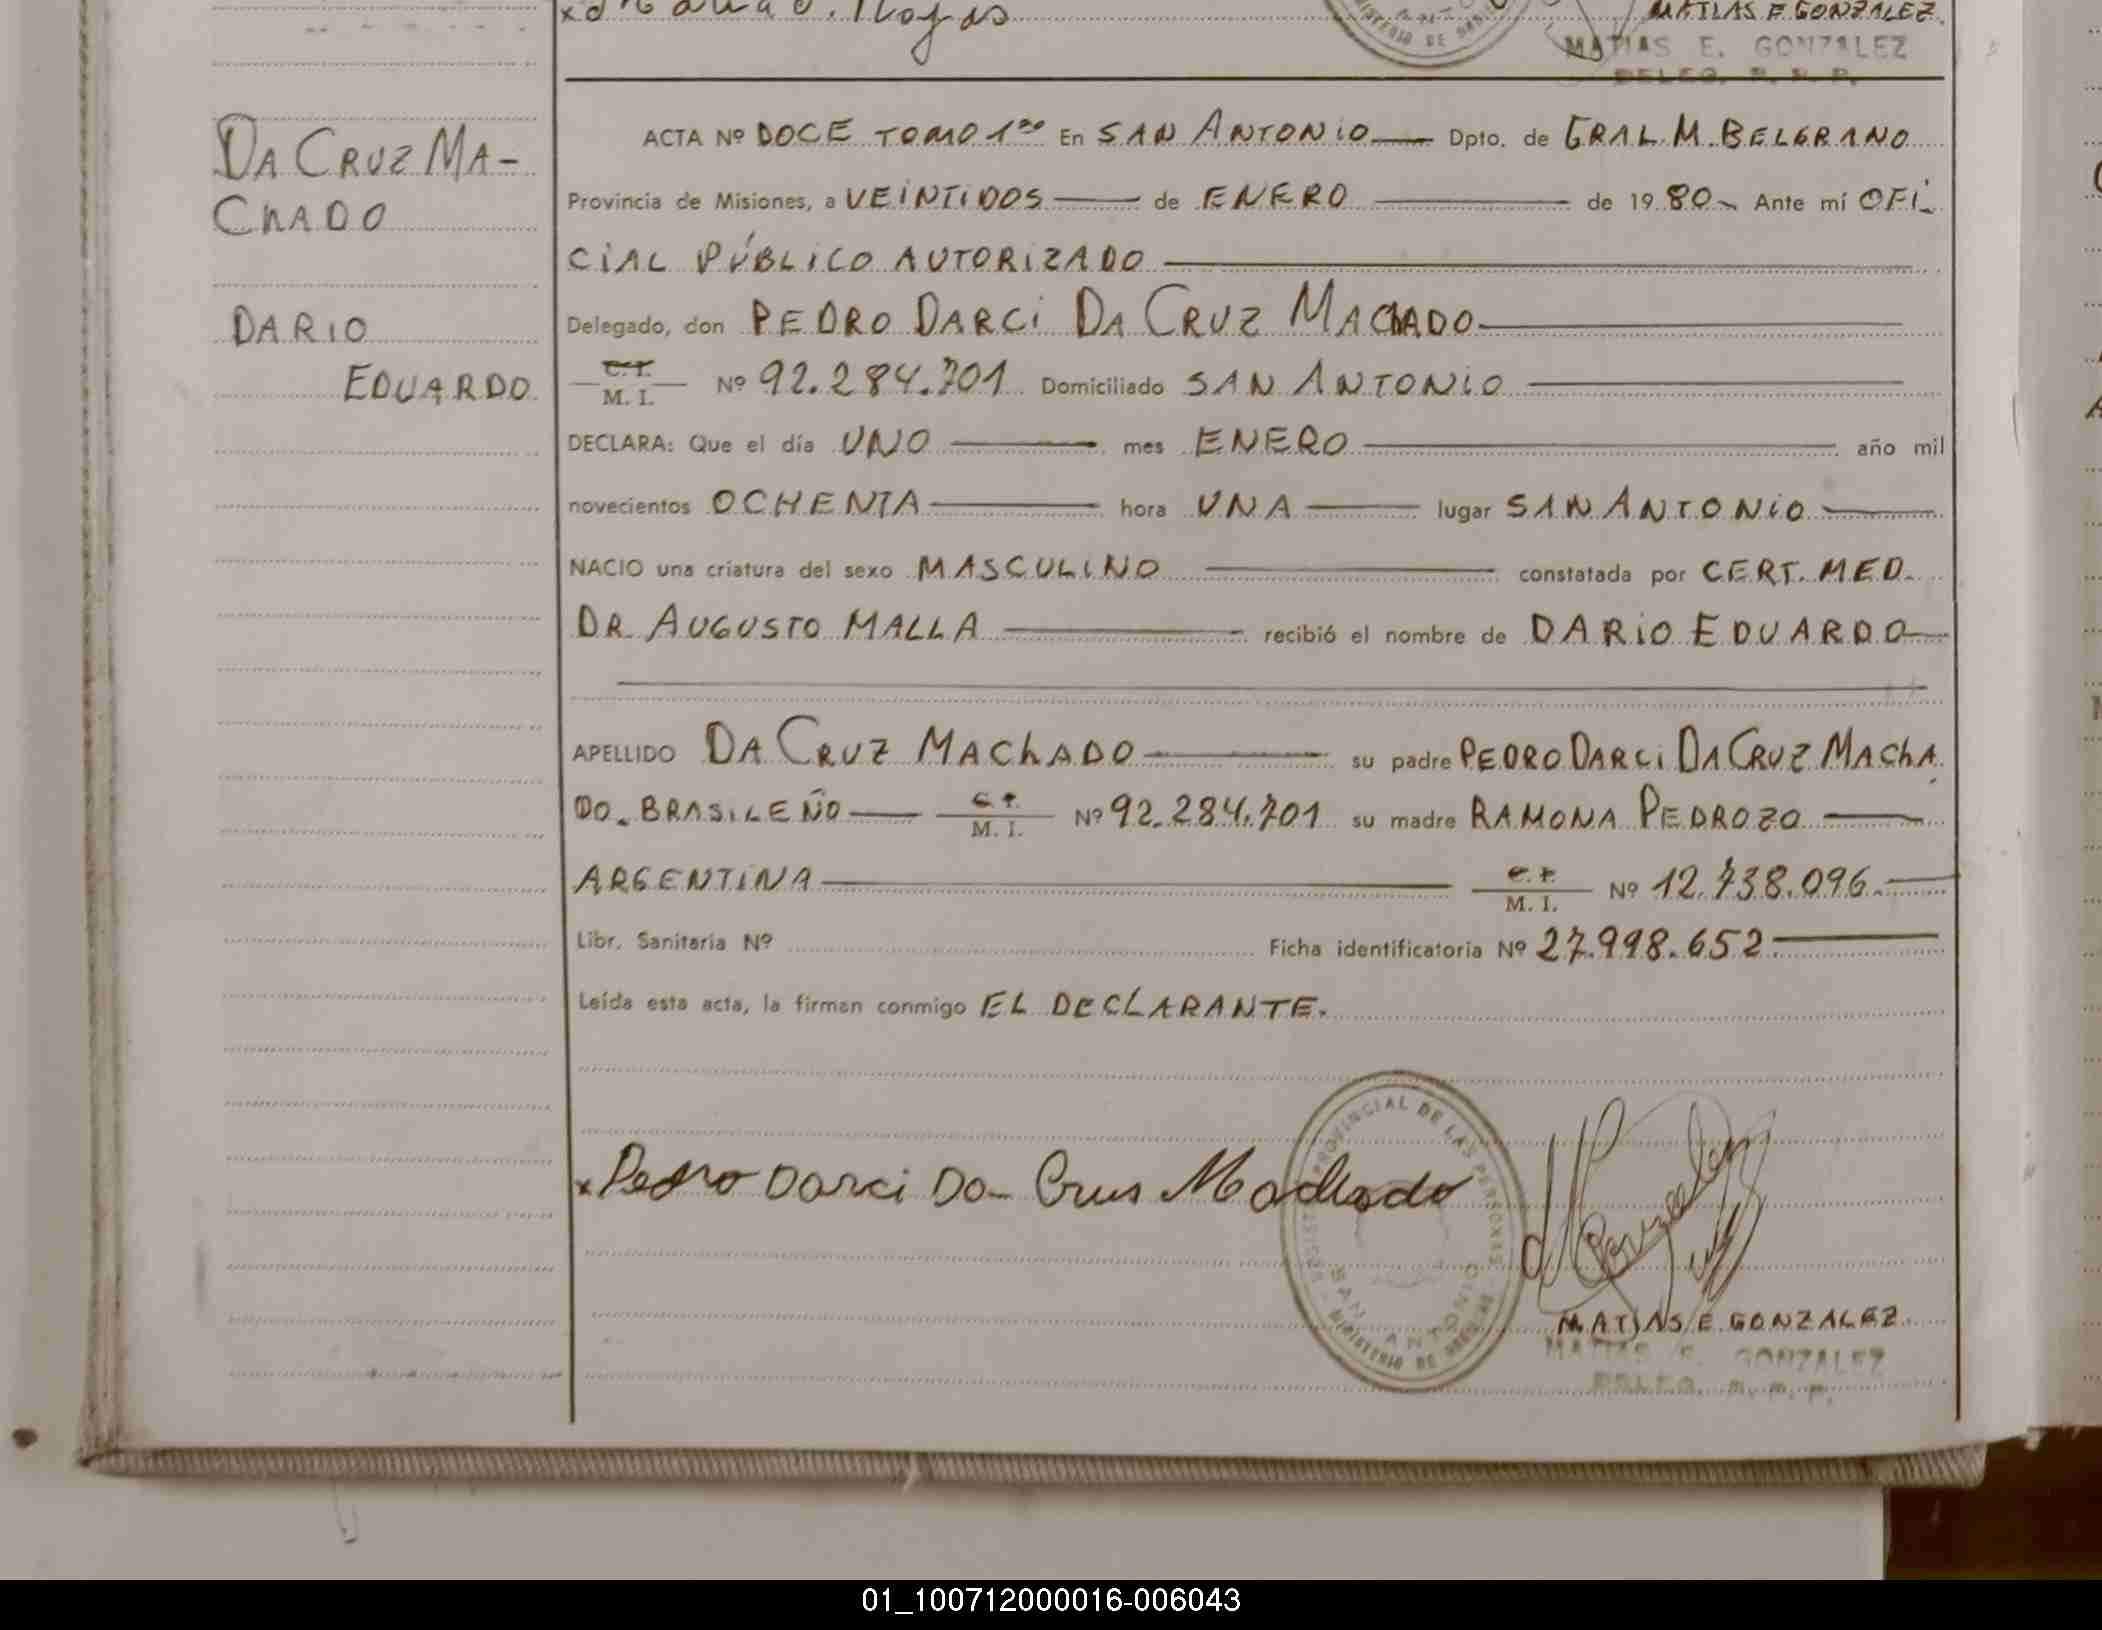 MATIAS E GONZALEZ
MATIAS E. GONZALEZ
DELEG. R. P. P.
DA CRUZ MA-
CHADO
DARIO
EDUARDO
ACTA Nº DOCE TOMO 1ro En SAN ANTONIO Dpto. de GRAL. M. BELGRANO
Provincia de Misiones, a VEINTIDOS de ENERO de 1980 Ante mí OFI-
CIAL PÚBLICO AUTORIZADO
Delegado, don PEDRO DARCI DA CRUZ MACHADO
C.I. M. I. Nº 92.284.701 Domiciliado SAN ANTONIO
DECLARA: Que el día UNO mes ENERO año mil
novecientos OCHENTA hora UNA lugar SAN ANTONIO
NACIO una criatura del sexo MASCULINO constatada por CERT. MED.
DR. AUGUSTO MALLA recibió el nombre de DARIO EDUARDO
APELLIDO DA CRUZ MACHADO su padre PEDRO DARCI DA CRUZ MACHA
DO. BRASILEÑO C.I. M. I. Nº 92.284.701 su madre RAMONA PEDROZO
ARGENTINA C.I. M. I. Nº 12.738.096.
Libr. Sanitaria Nº Ficha identificatoria Nº 27.998.652
Leída esta acta, la firman conmigo EL DECLARANTE.
x Pedro Darci Da Crus Machado
REGISTRO PROVINCIAL DE LAS PERSONAS
SAN ANTONIO
MINISTERIO DE
MATIAS E. GONZALEZ
MATIAS E. GONZALEZ
DELEG. R. P. P.
01_100712000016-006043